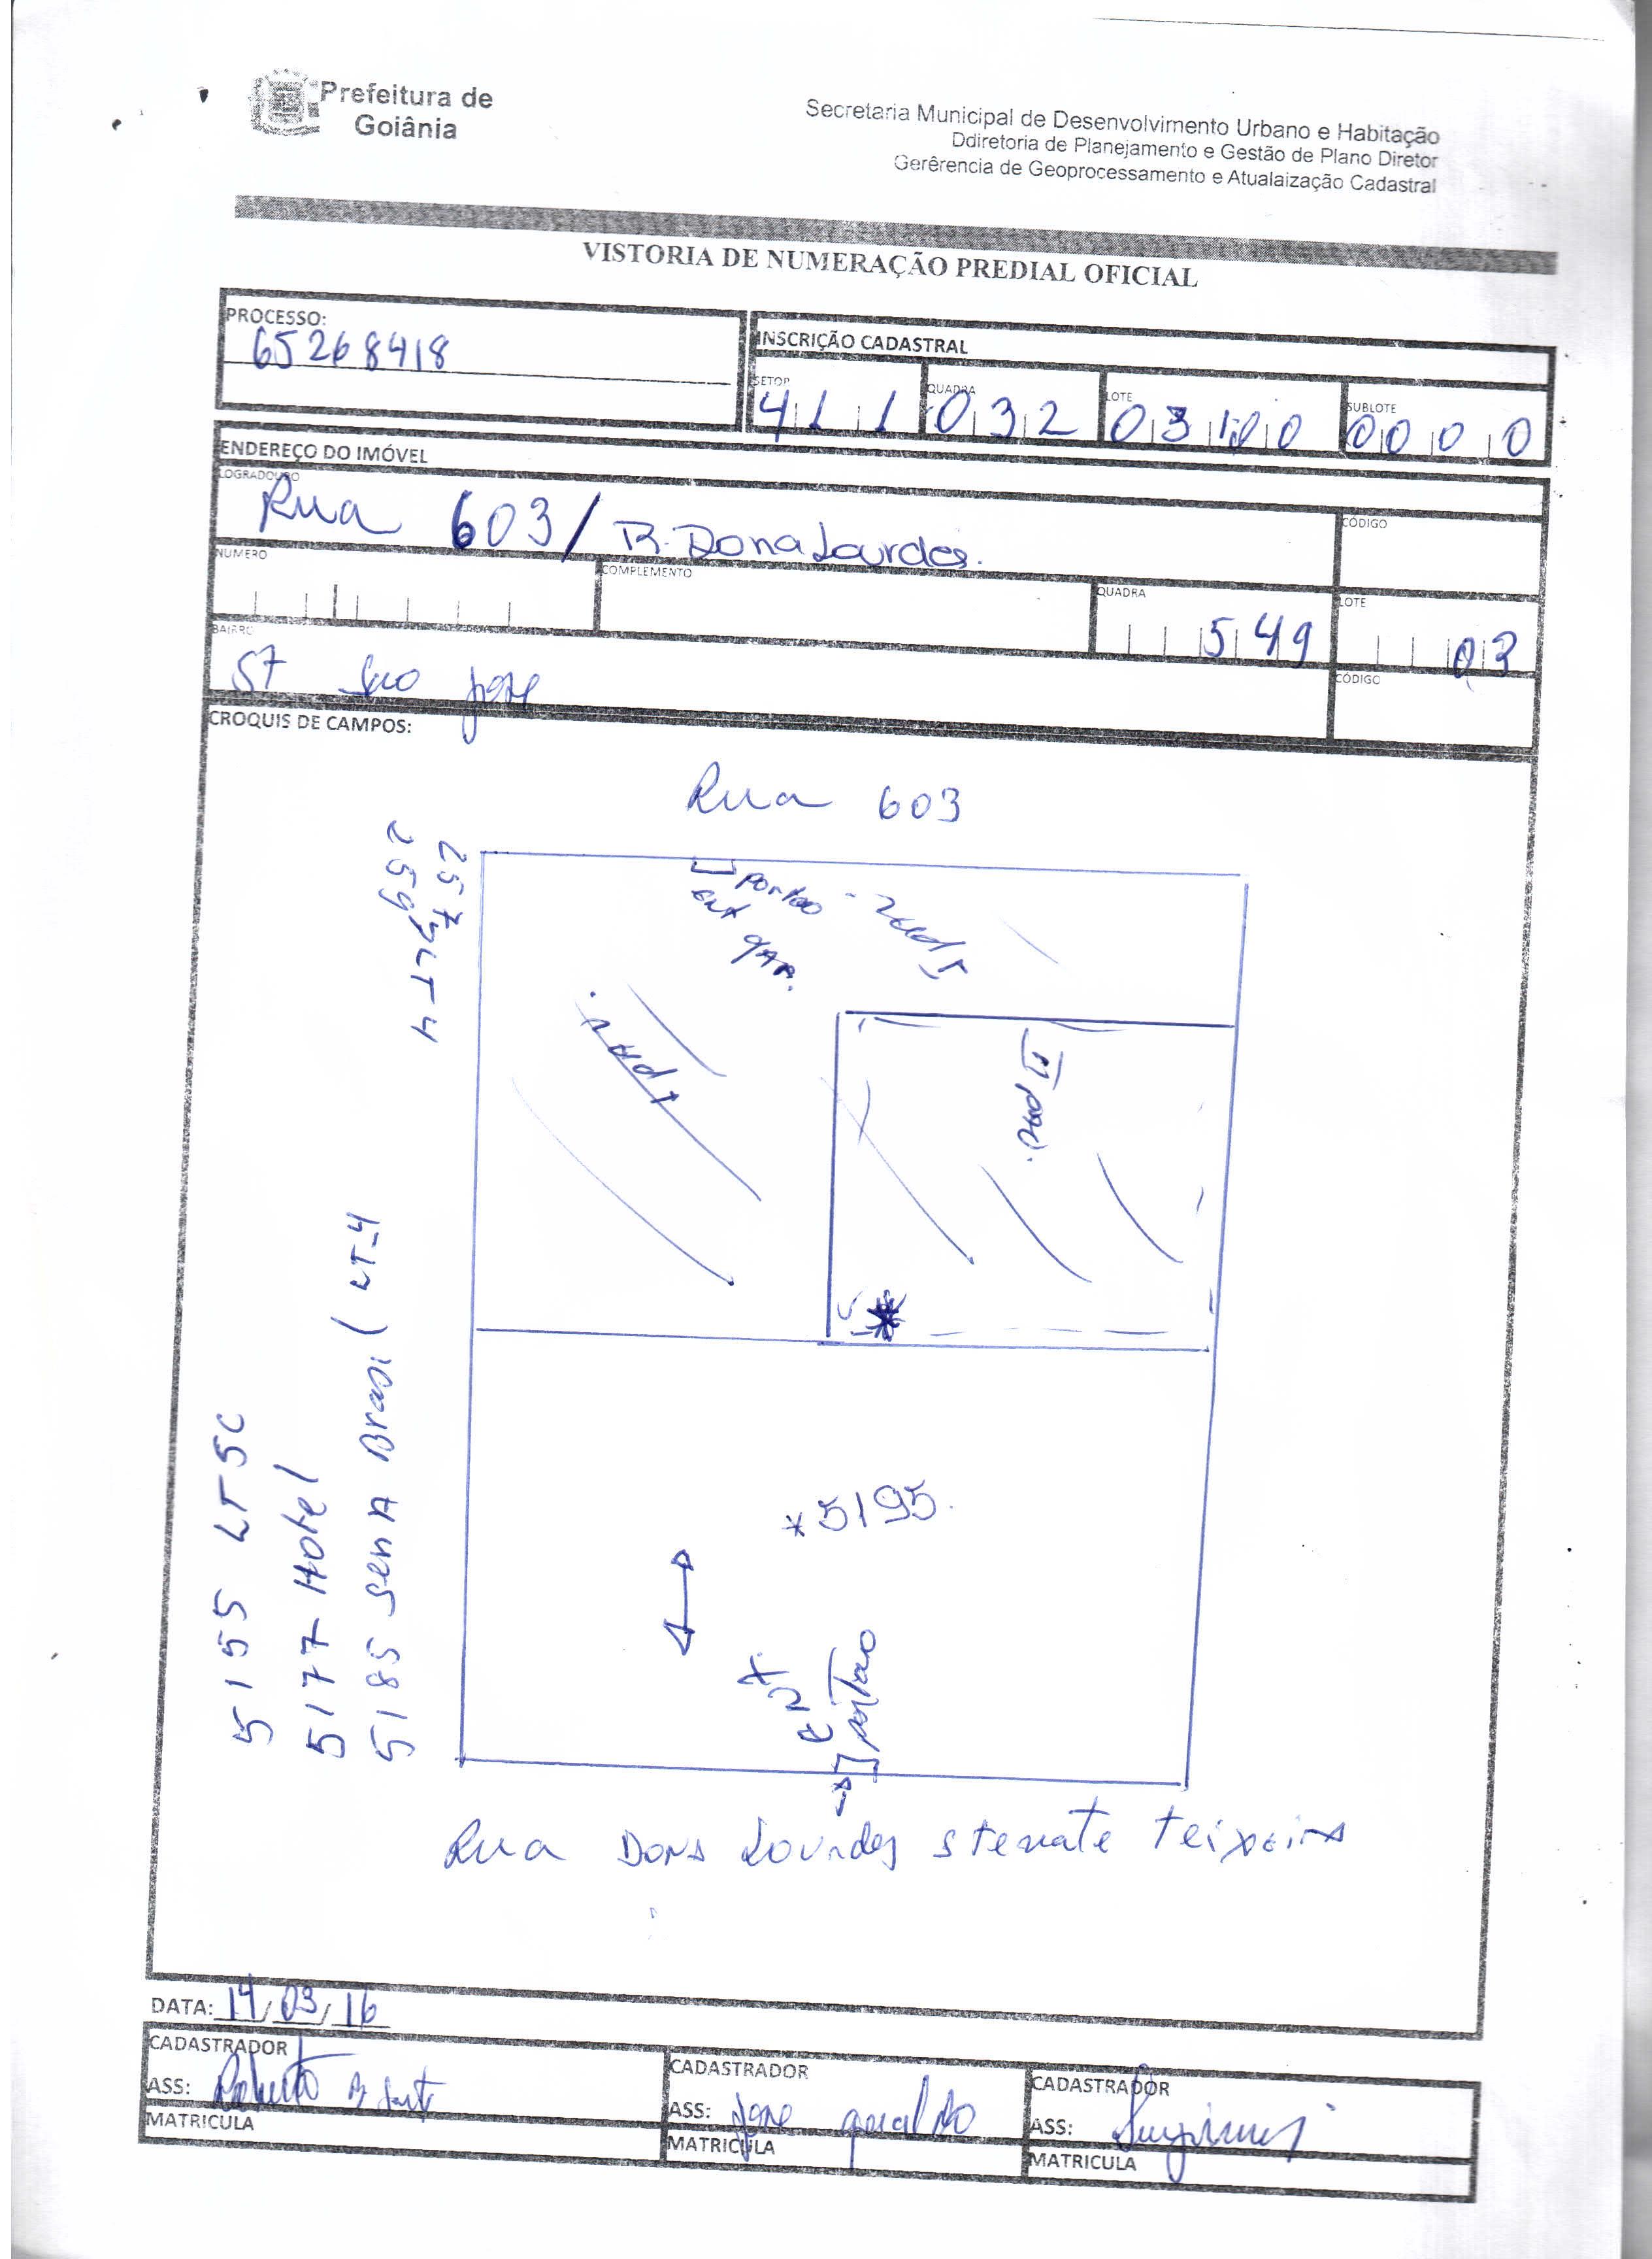 Prefeitura de
Goiânia
Secretaria Municipal de Desenvolvimento Urbano e Habitação
Ddiretoria de Planejamento e Gestão de Plano Diretor
Gerêrencia de Geoprocessamento e Atualaização Cadastral
VISTORIA DE NUMERAÇÃO PREDIAL OFICIAL
PROCESSO:
65268418
INSCRIÇÃO CADASTRAL
SETOR QUADRA LOTE SUBLOTE
411 032 0000
ENDEREÇO DO IMÓVEL
LOGRADOURO
Rua 603/ R. Dona Lourdes.
CÓDIGO
NUMERO COMPLEMENTO QUADRA LOTE
549 03
BAIRRO
ST Sao jose
CÓDIGO
CROQUIS DE CAMPOS:
Rua 603
257
259 LT-4
portao - pav I
ent gar.
1 pav.
pav II
5155 LT5C
5177 Hotel
5185 senA Brasil LT-4
*5195.
ENT
portao
Rua Dona Lourdes Stenate Teixeira
DATA: 14/03/16
CADASTRADOR
ASS: Roberto
MATRICULA
CADASTRADOR
ASS: Jose geraldo
MATRICULA
CADASTRADOR
ASS:
MATRICULA